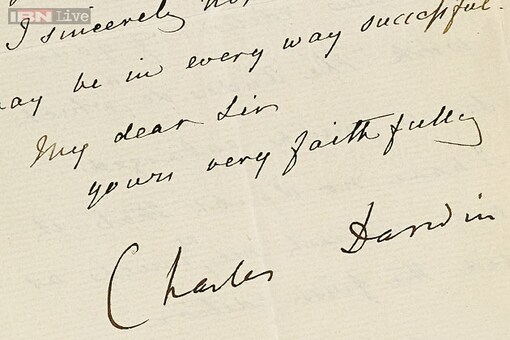 IBN Live
I sincerely
may be in every way successful.
My dear Sir
yours very faithfully
Charles Darwin